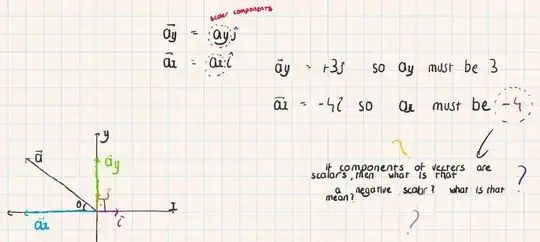 scalar components
a⃗y = ay ĵ
a⃗x = ax î
a⃗y = +3ĵ so ay must be 3
a⃗x = -4î so ax must be -4
?
if components of vecters are
scalars, then what is that
a negative scalr? what is that
mean?
?
?
y
a⃗y
a⃗
ĵ
θ
a⃗x
î
x